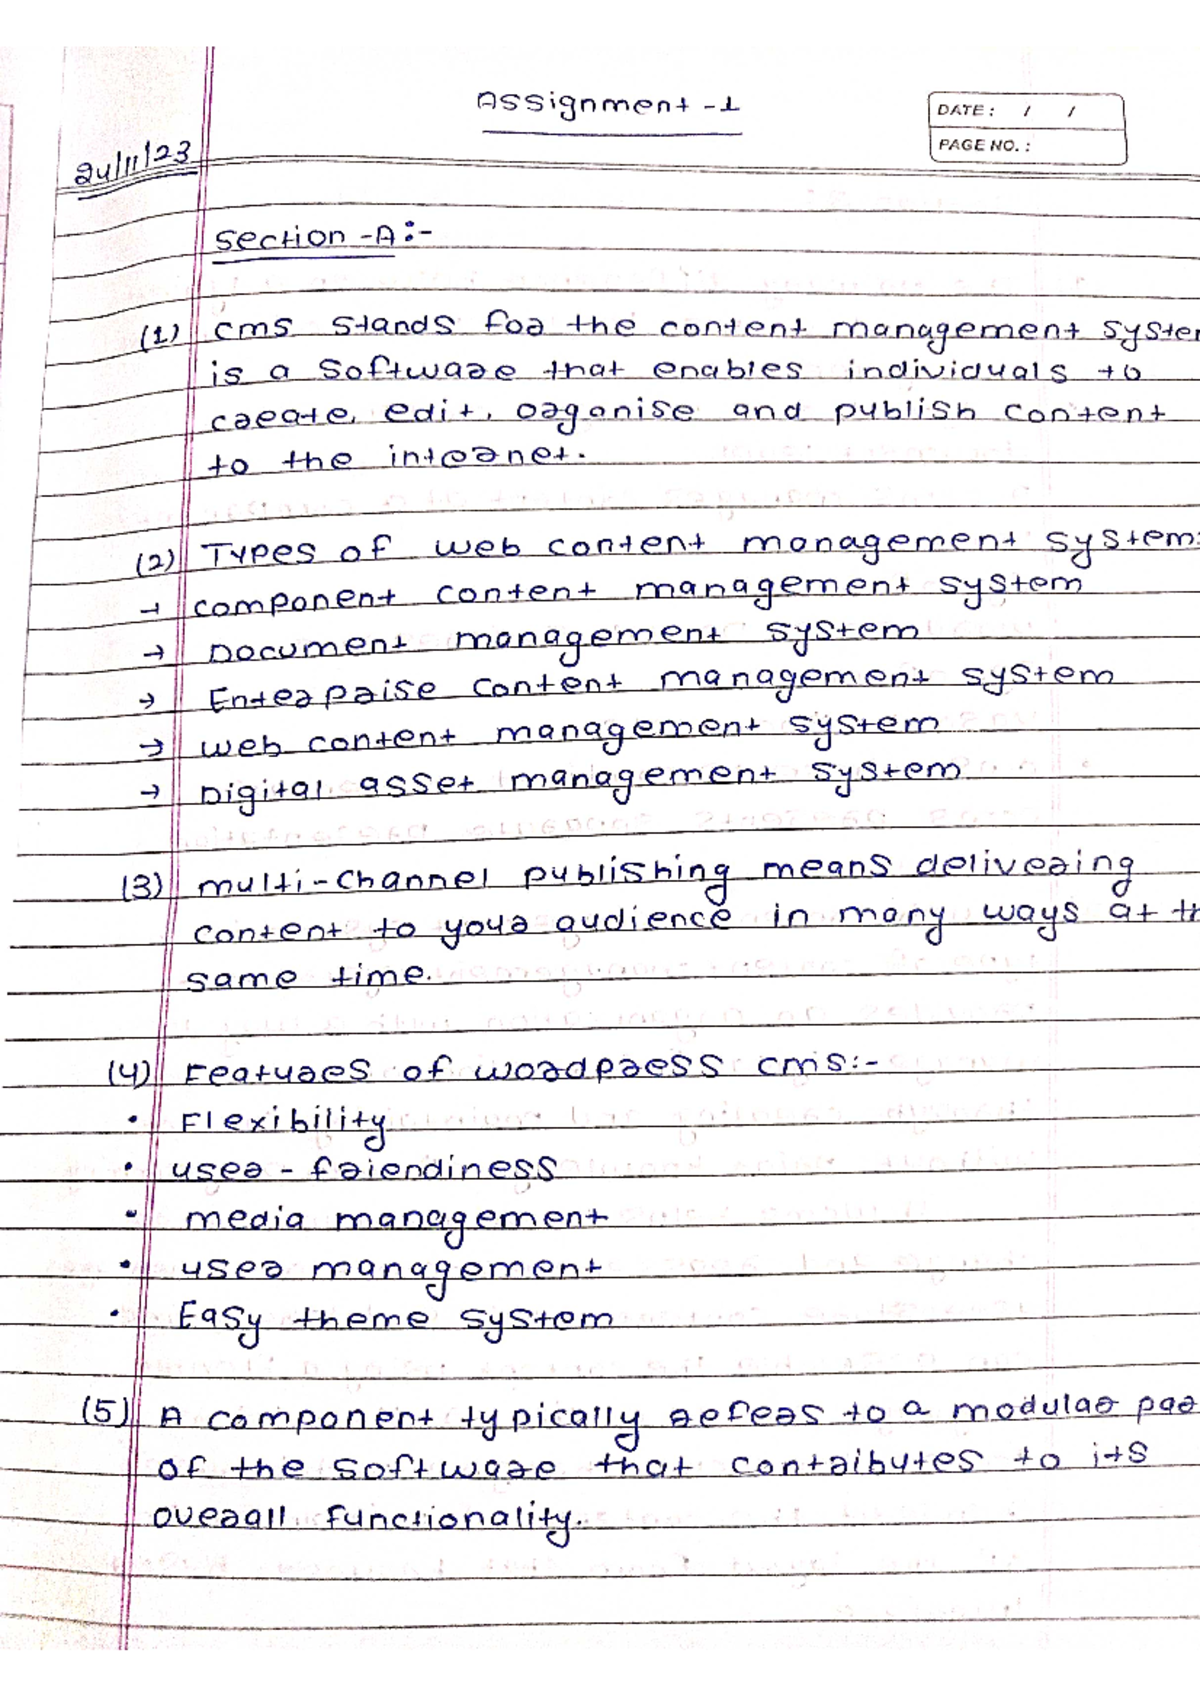 Assignment -1
DATE: / /
PAGE NO.:
24/11/23
Section -A:-
(1) CMS stands for the content management syster
is a software that enables individuals to
create, edit, organise and publish content
to the internet.
(2) Types of web content management system:
→ component content management system
→ Document management system
→ Enterprise content management system
→ web content management system
→ Digital asset management system
(3) multi-channel publishing means delivering
content to your audience in many ways at th
same time.
(4) Features of wordpress CMS:-
• Flexibility
• user - friendiness
• media management
• user management
• Easy theme system
(5) A component typically refers to a modular par
of the software that contributes to its
overall functionality.